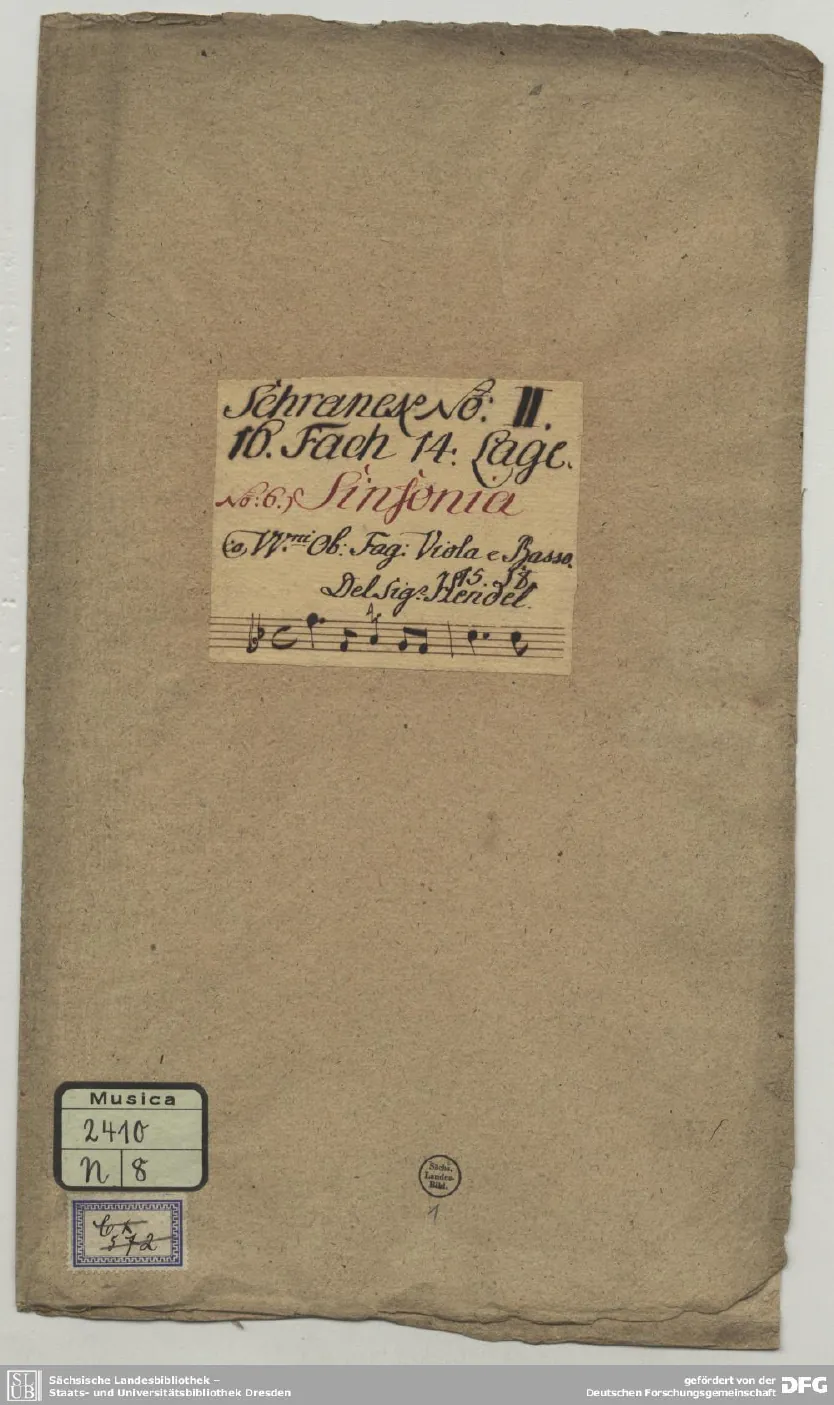 Schranck No: II.
16. Fach 14. Lage.
No: 6.) Sinfonia
Co VV.ni Ob: Fag: Viola e Basso.
Del Sig.e Hendel.
Musica
2410
N 8
Sächs.
Landes-
Bibl.
1
572
Sächsische Landesbibliothek –
Staats- und Universitätsbibliothek Dresden
SLUB
gefördert von der
Deutschen Forschungsgemeinschaft
DFG